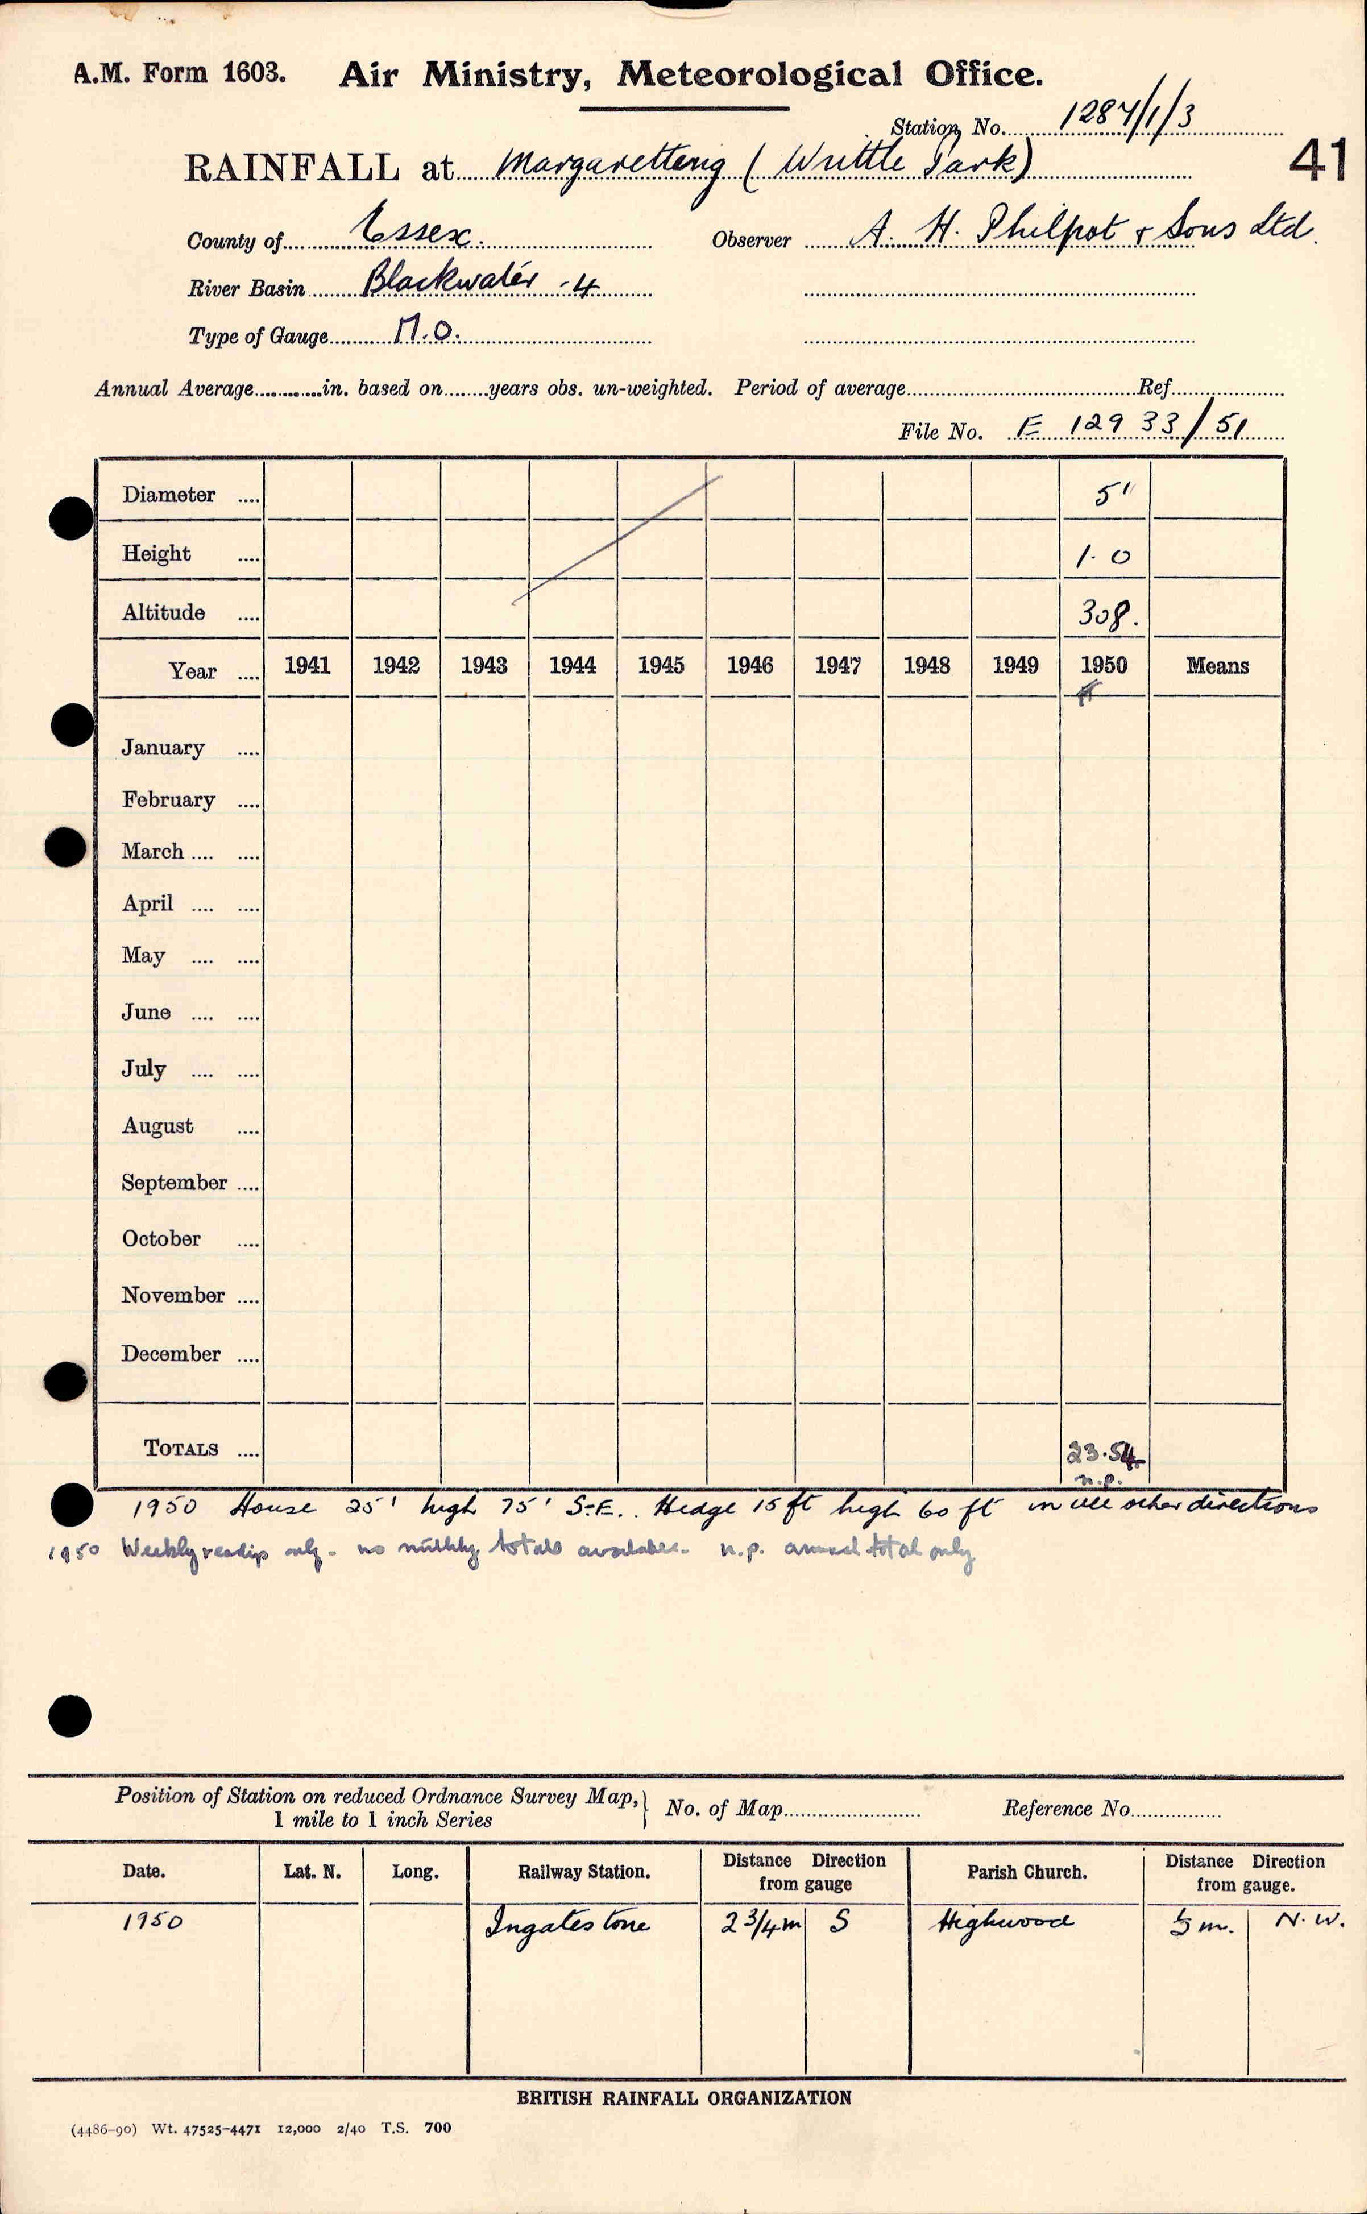 A.M. Form 1603. Air Ministry, Meteorological Office.
Station No. 1284/1/3
RAINFALL at Margaretting (Writtle Park) 41
County of Essex. Observer A. H. Philpot & Sons Ltd.
River Basin Blackwater -4
Type of Gauge M.O.
Annual Average in. based on years obs. un-weighted. Period of average Ref.
File No. E 12933/51
Diameter .... 5"
Height .... 1.0
Altitude .... 308.
Year .... 1941 1942 1943 1944 1945 1946 1947 1948 1949 1950 Means
January ....
February ....
March .... ....
April .... ....
May .... ....
June .... ....
July .... ....
August ....
September ....
October ....
November ....
December ....
TOTALS .... 23.54
n.p.
1950 House 25' high 75' S.E.. Hedge 15 ft high 60 ft in all other directions
1950 Weekly readings only. no monthly totals available. n.p. annual total only
Position of Station on reduced Ordnance Survey Map, No. of Map Reference No.
1 mile to 1 inch Series
Date. Lat. N. Long. Railway Station. Distance Direction from gauge Parish Church. Distance Direction from gauge.
1950 Ingatestone 2 3/4 m S Highwood m. N.W.
BRITISH RAINFALL ORGANIZATION
(4486-90) Wt. 47525-4471 12,000 2/40 T.S. 700